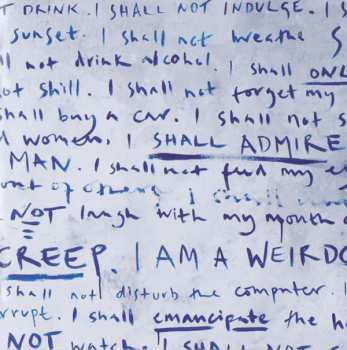 T DRINK. I SHALL NOT INDULGE. I S
sunset. I shall not breathe S
ll not drink alcohol. I shall ONL
ot shill. I shall not forget my
shall buy a car. I shall not s
women. I SHALL ADMIRE
MAN. I shall not feed my e
of others. I
NOT laugh with my mouth
CREEP. I AM A WEIRDO
shall not disturb the computer. I
rrupt. I shall emancipate the h
NOT watch. I SHALL NOT